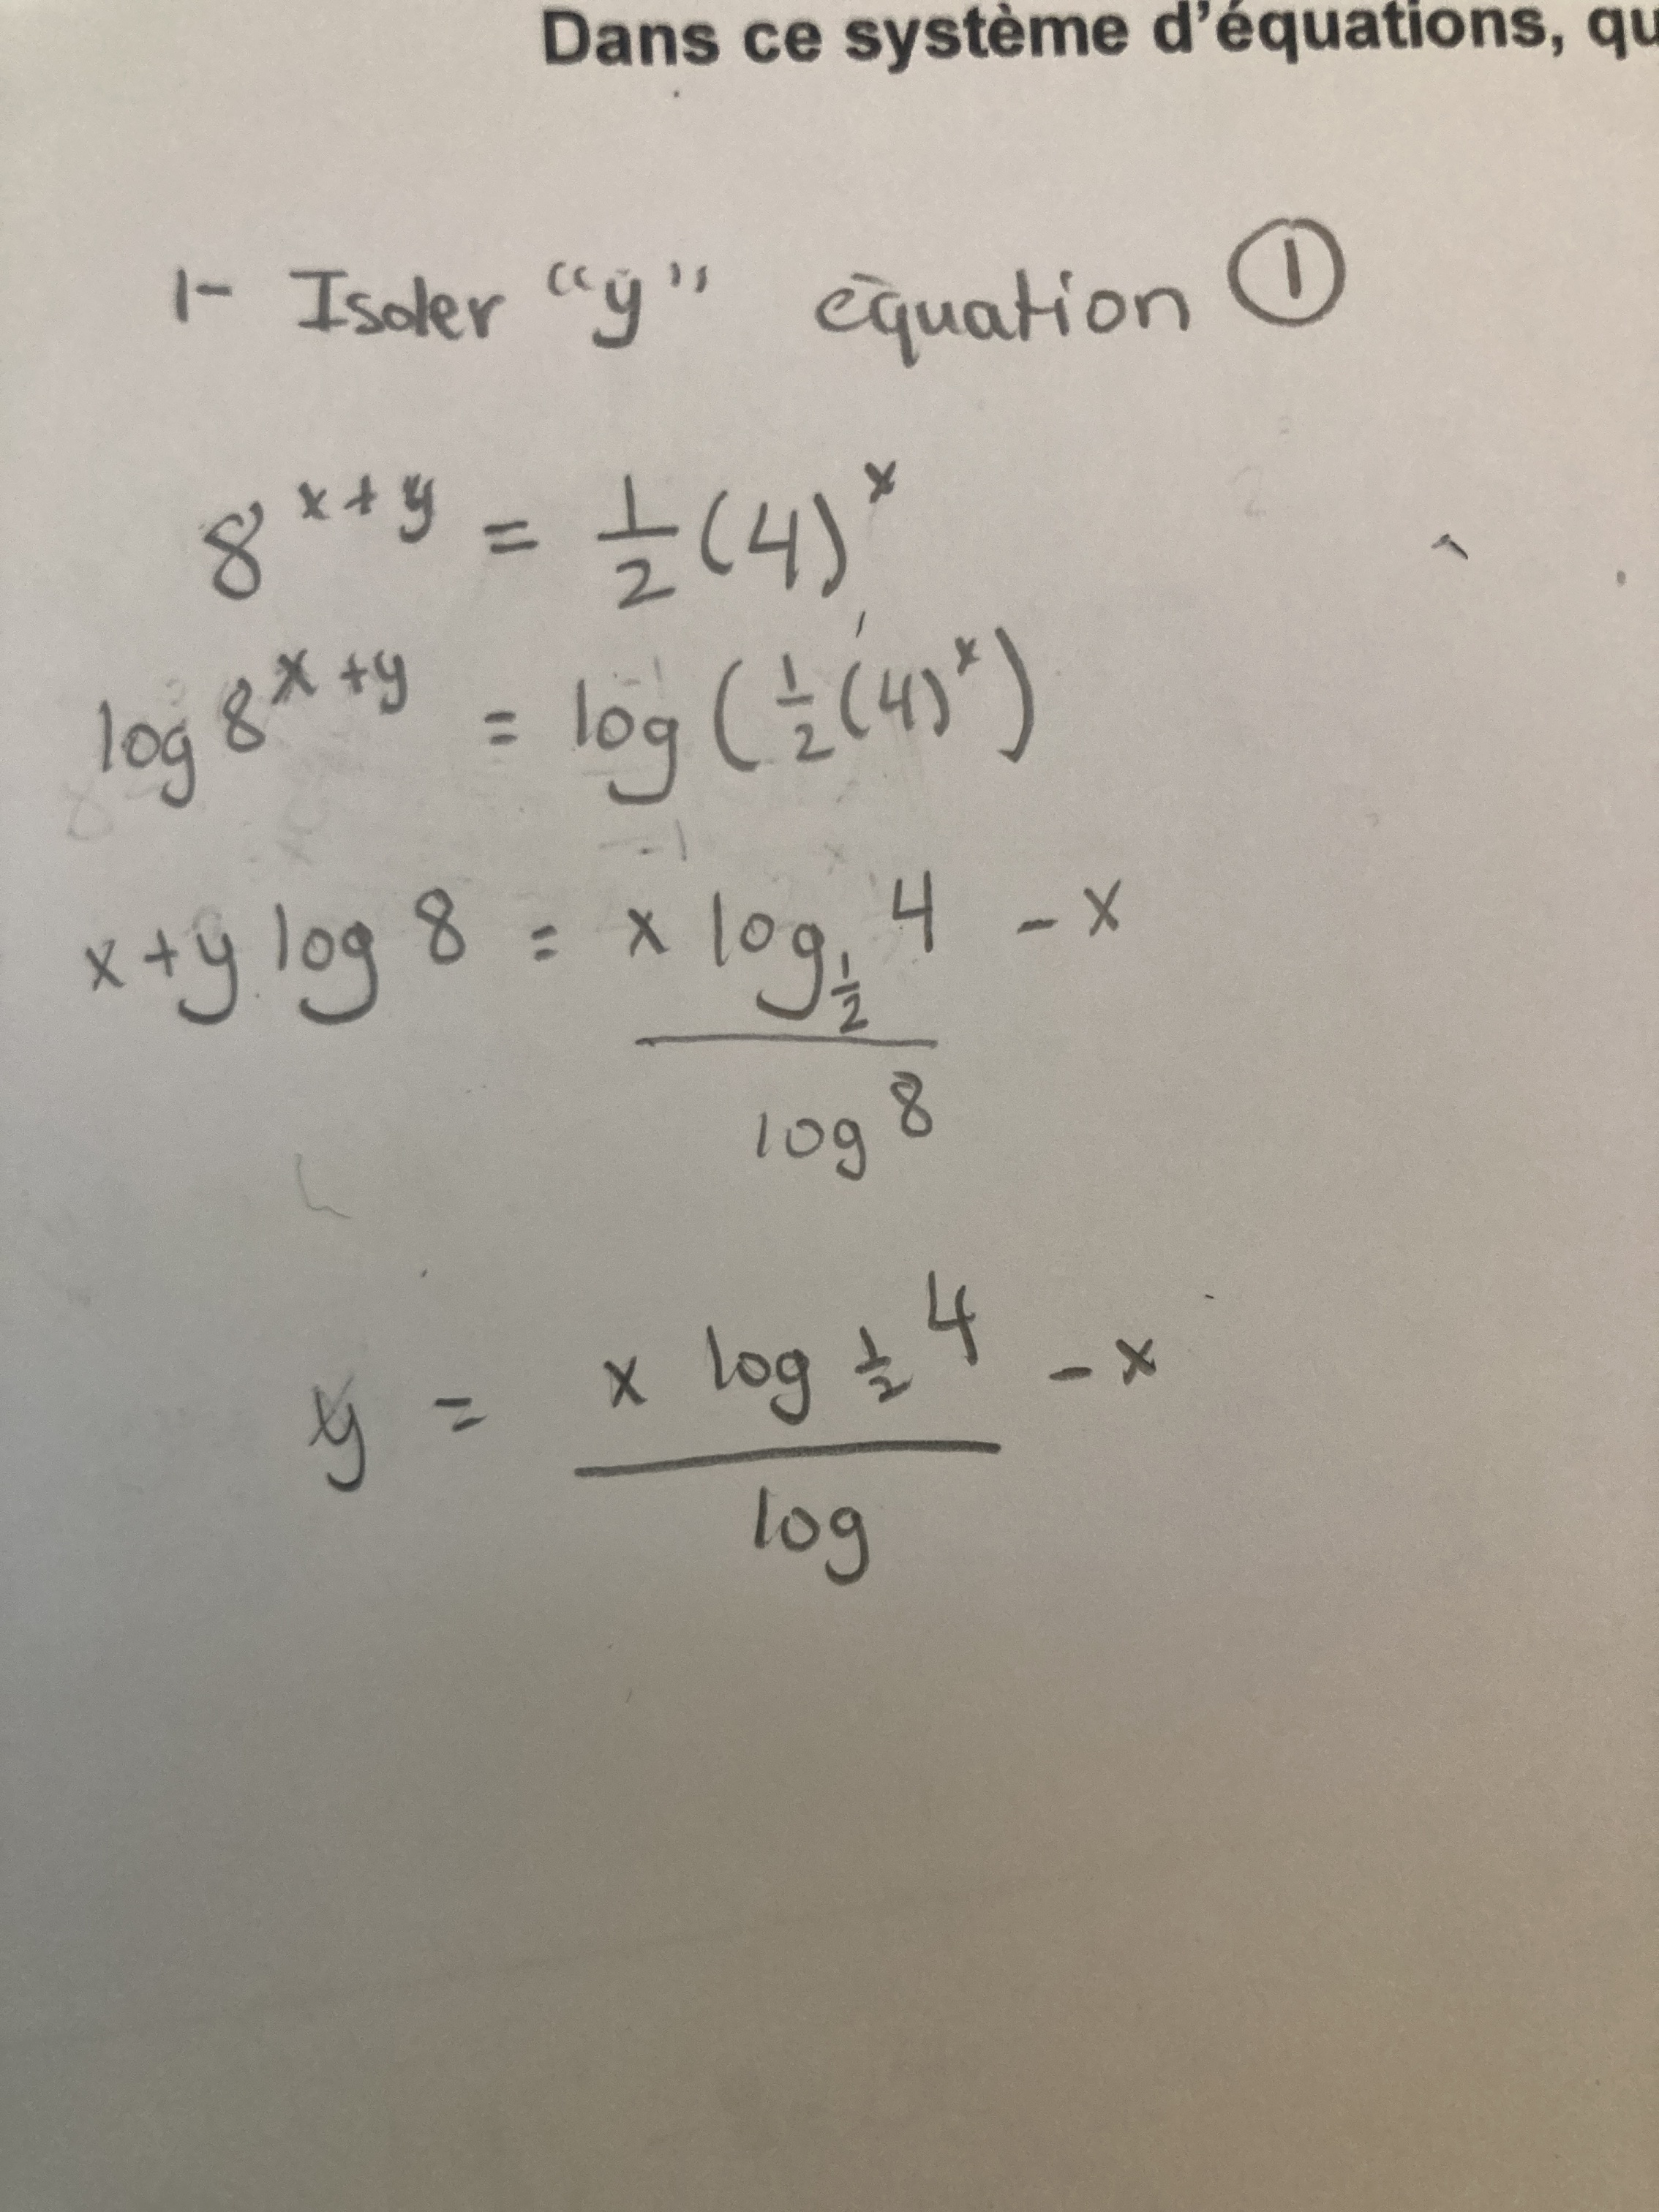 Dans ce système d'équations, qu
1- Isoler "y" équation ①
8^{x+y} = \frac{1}{2}(4)^x
log 8^{x+y} = log (\frac{1}{2}(4)^x)
x+y log 8 = \frac{x log_{\frac{1}{2}} 4}{log 8} - x
y = \frac{x log_{\frac{1}{2}} 4}{log} - x